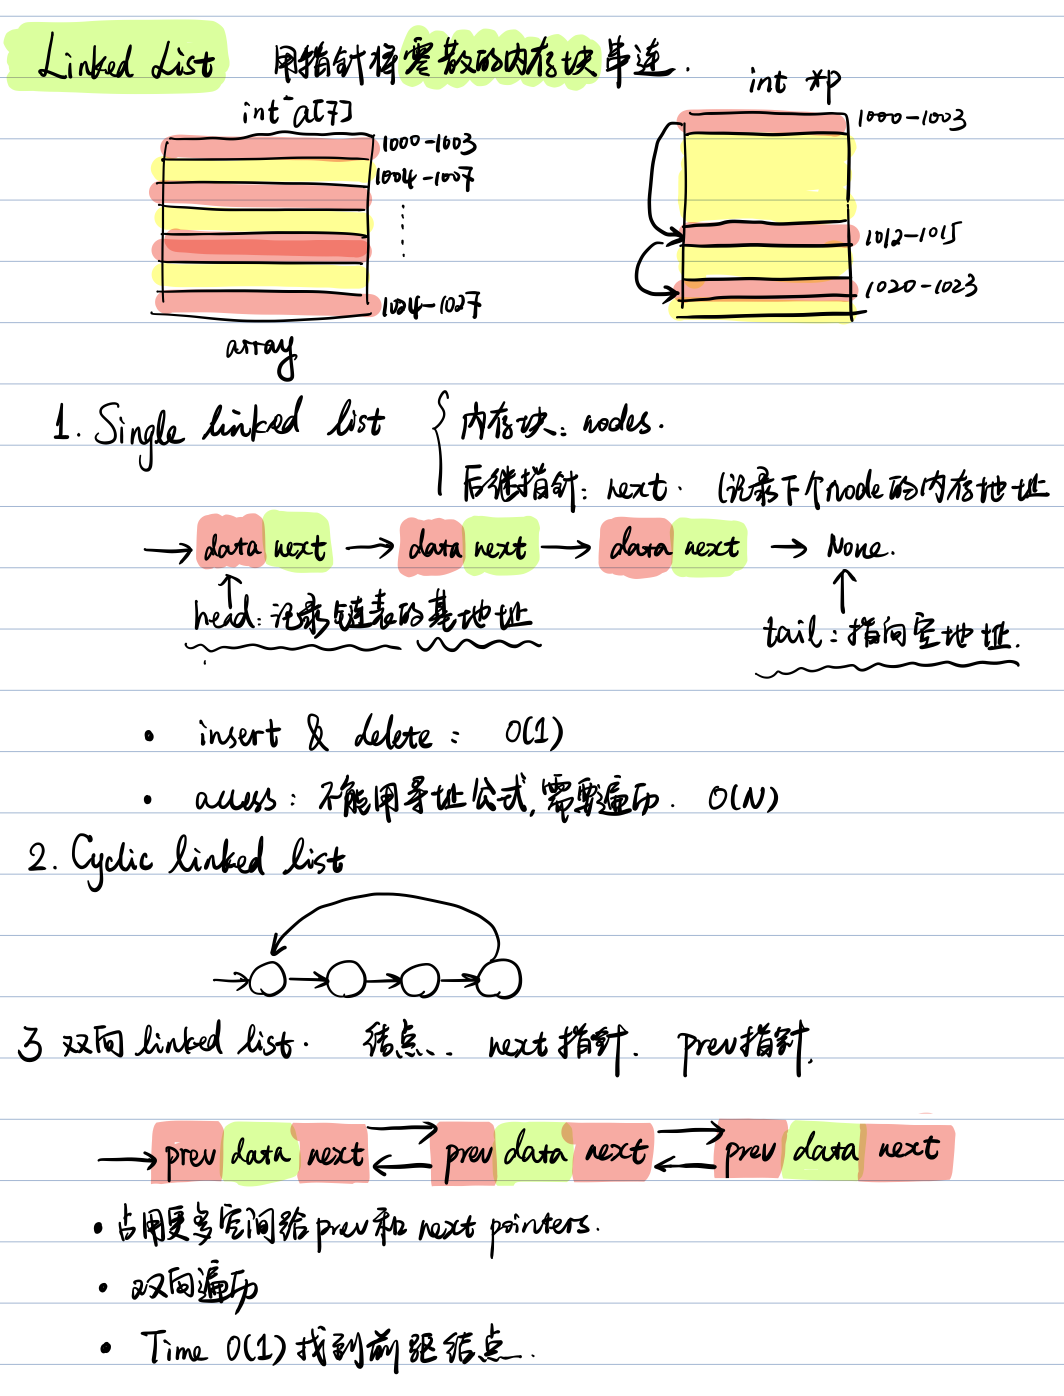 Linked List 用指针将零散的内存块串连.
int a[7]
int *p
1000-1003
1004-1007
1024-1027
array
1000-1003
1012-1015
1020-1023
1. Single linked list { 内存块: nodes.
后继指针: next. (记录下个node的内存地址
→ data next → data next → data next → None.
head: 记录链表的基地址
tail: 指向空地址.
• insert & delete: O(1)
• access: 不能用寻址公式, 需要遍历. O(N)
2. Cyclic linked list
3 双向 linked list. 结点. next 指针. prev指针.
prev data next prev data next prev data next
• 占用更多空间给prev和 next pointers.
• 双向遍历
• Time O(1) 找到前驱结点.